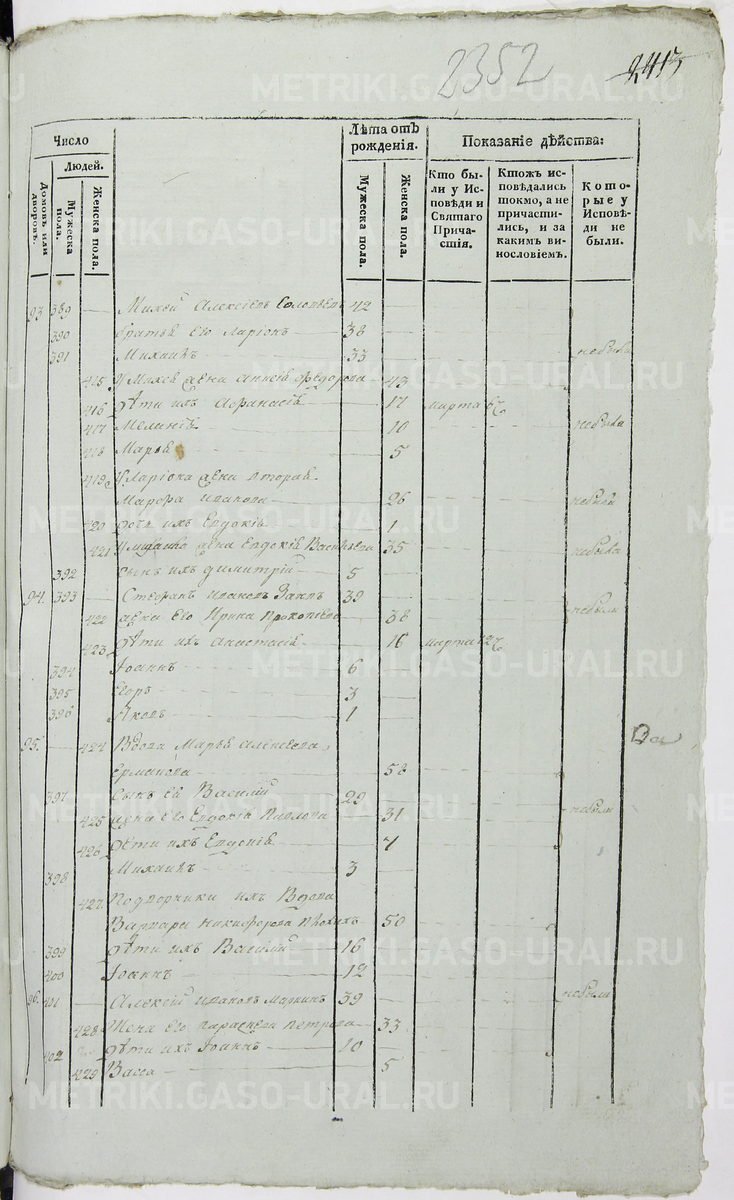 2352 2413
Число
Людей.
Домовъ или дворовъ.
Мужеска пола.
Женска пола.
Лѣта отъ рождения.
Мужеска пола.
Женска пола.
Показание дѣйства:
Кто были у Исповѣди и Святаго Причастія.
Ктожъ исповѣдались токмо, а не причастились, и за какимъ винословіемъ.
Которые у Исповѣди не были.
93 389 Михей Алексѣевъ 42
390 братья Его Ларионъ 38
391 Михаилъ 33 небыли
415 У Михея жена Аннѣя Федорова 43
416 Дѣти ихъ Афанасія 17 марта
417 Меланія 10 небыла
418 Марья 5
419 У Ларiона жена вторая
Марфа Иванова 26
420 дочь ихъ Евдокія 1
421 жена Евдокія Васильева 35 небыла
392 сынъ ихъ Димитрій 5
94. 393 Стефанъ Ивановъ 39 небыли
422 жена Его Ирина Прокопьева 38
423 Дѣти ихъ Анастасія 16 марта
394 Iоаннъ 6
395 Егоръ 3
396 Яковъ 1
95. 424 Вдова Марья Алексеева
Ермакова 58
397 Сынъ Ея Василій 29
425 жена Его Евдокія Павлова 31 небыли
426 Дѣти ихъ Евдокія 7
398 Михаилъ 3
427 Подворники ихъ Вдова
Варвара Никифорова 50
399 Дѣти ихъ Василій 16
400 Iоаннъ 12
96. 401 Алексѣй Ивановъ 39 небыли
428 Жена Его Параскева Петрова 33
402 Дѣти ихъ Iоаннъ 10
429 Васса 5
METRIKI.GASO-URAL.RU